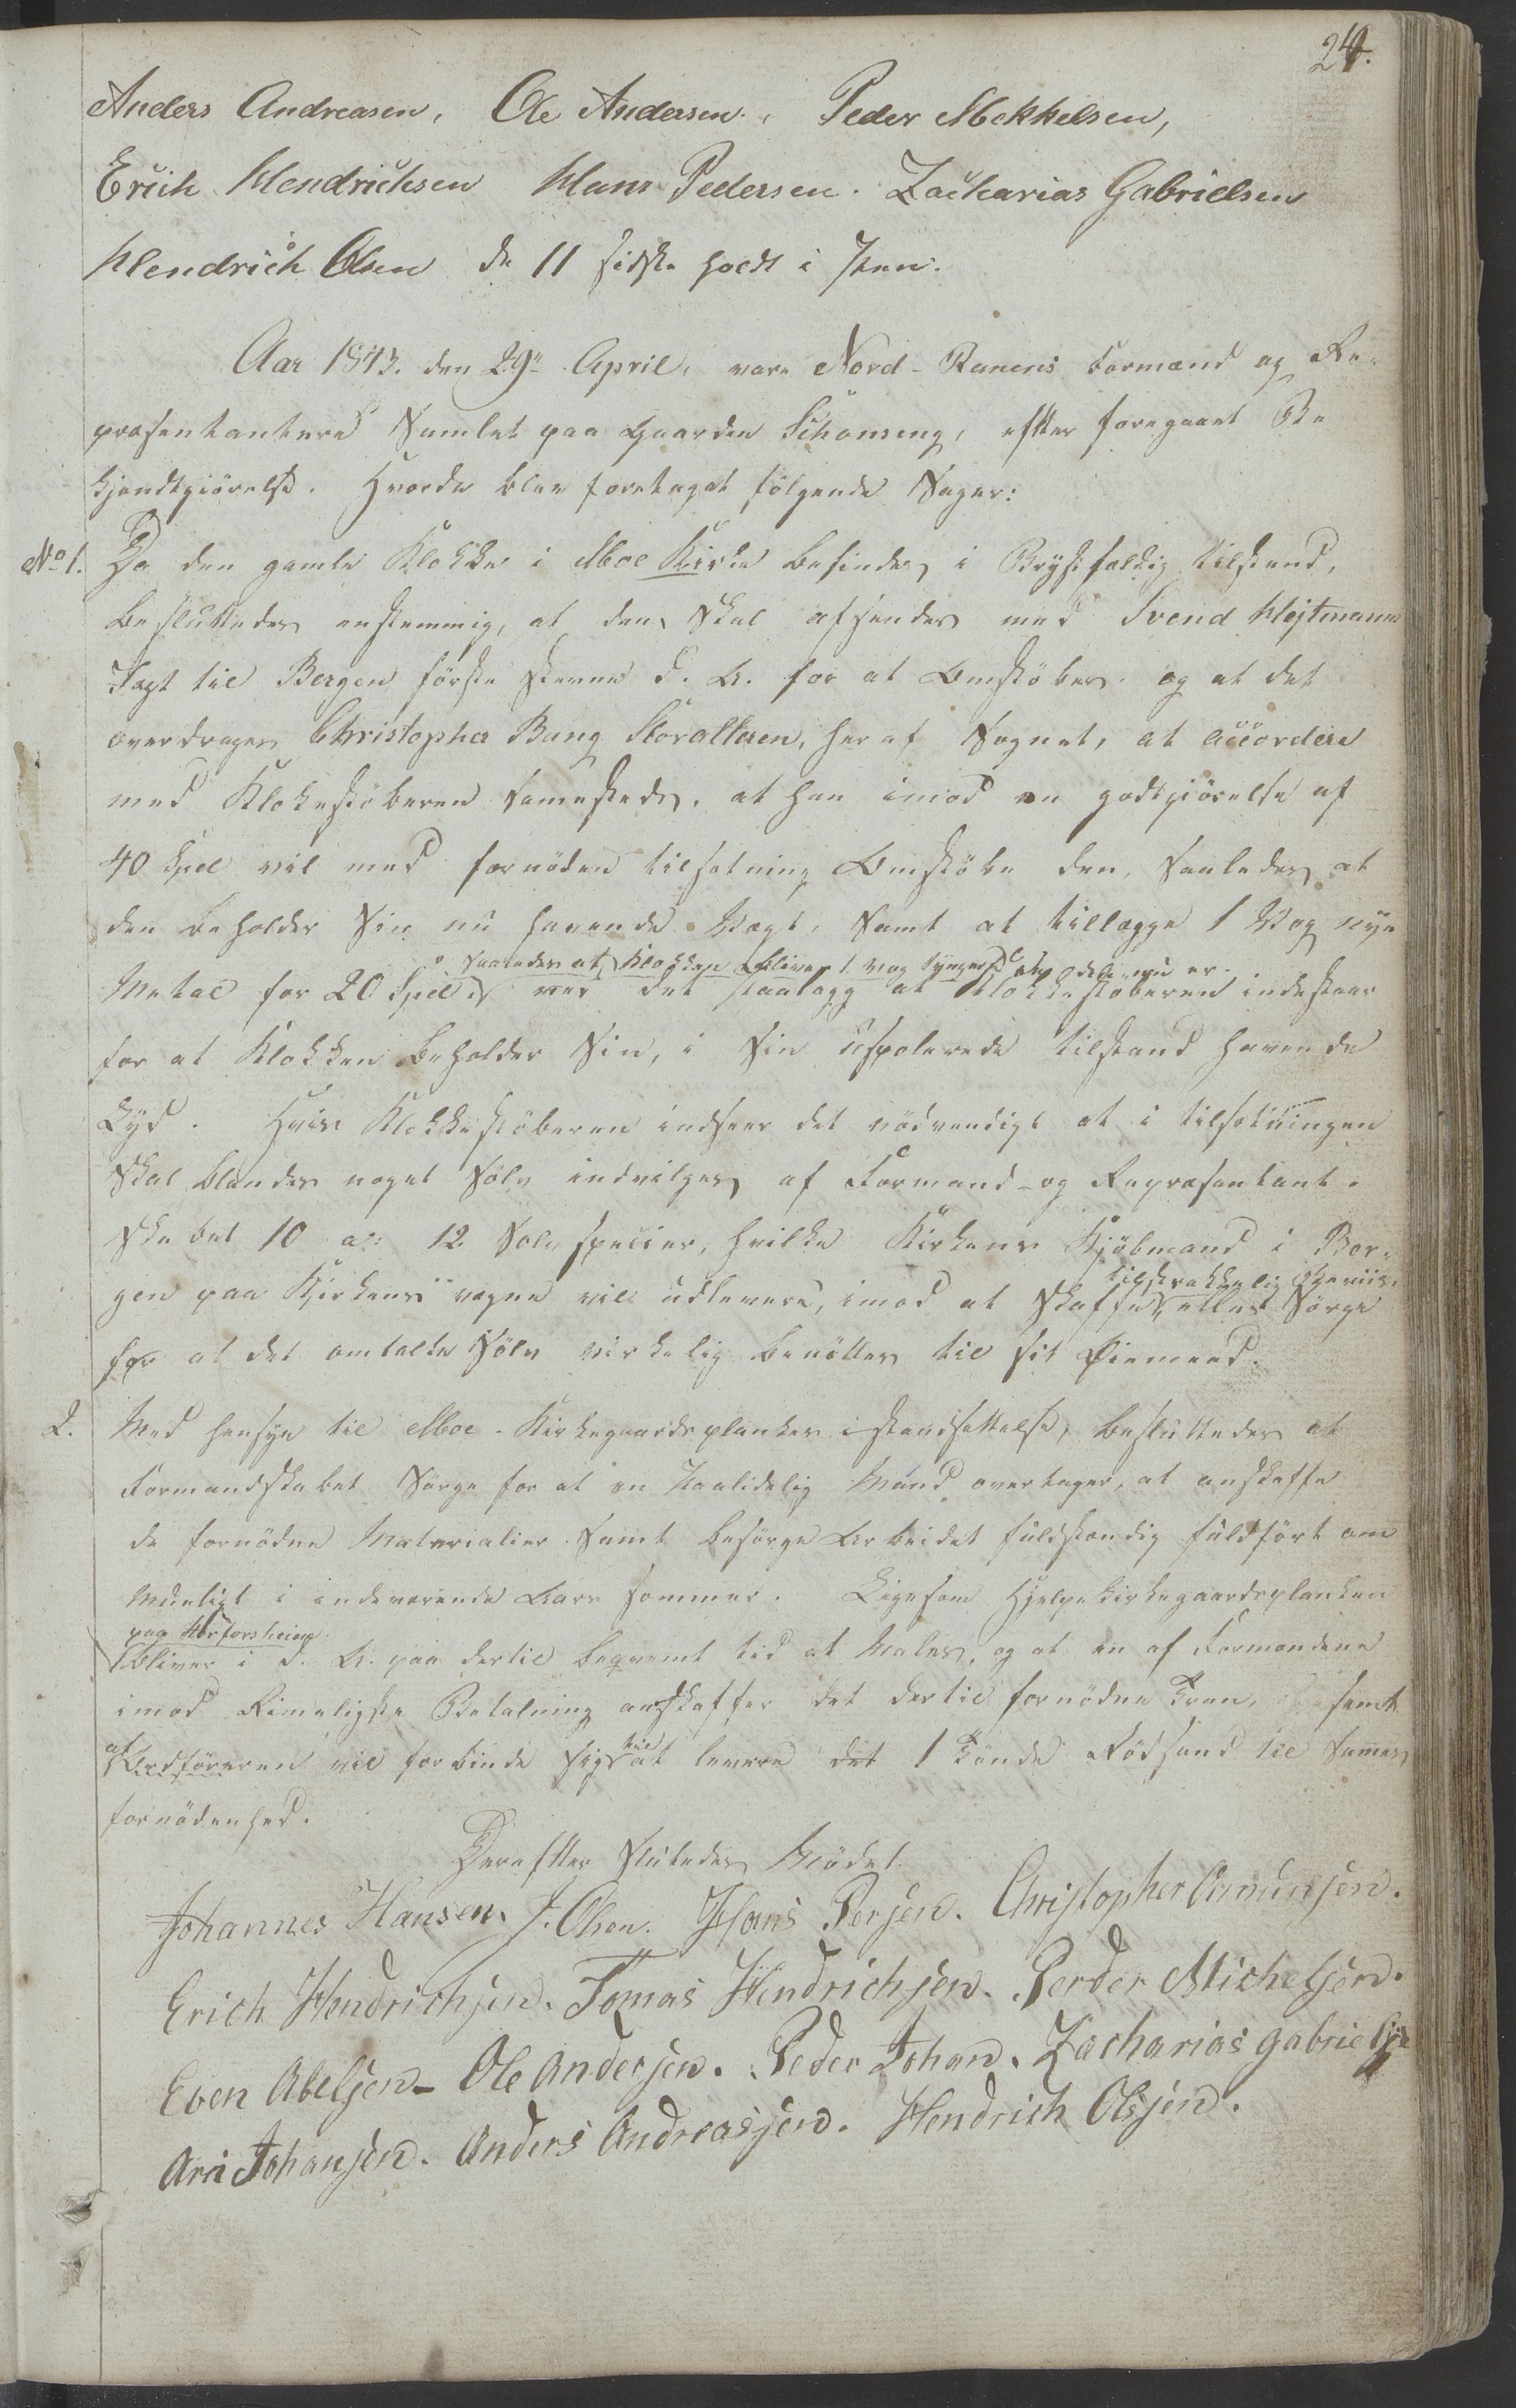 24.
Anders Andreasen, Ole Andersen, Peder Mekkelsen,
Erich Hendrichsen Hans Pedersen. Zacharias Gabrielsen
Hendrich Olsen de 11 sidste holdt i Pen.
Aar 1843. den 29de April, vare Nord-Ranens Formænd og Re-
præsentantere Samlet paa Gaarden Schonseng, efter foregaaet Be
kjendtgiörelse. Hvorda blev foretaget fölgende Sager:
No 1. Da den gamle Klokke i Moe Kirke befindes i Bröstfældig tilstand,
besluttedes enstemmig, at den skal afsendes med Svend Hejtmanns
Jagt til Bergen förste stevne d. A. for at Omstöbes. og at det
overdrages Christopher Bang Storallesen, her af Sognet, at accordere
med Klokestöberen sammesteds, at han imod en godtgiörelse af
40 Spd vil med fornöden tilsetning Omstöbe den, saaledes at
den beholder Sin nu havende Vægt, samt at tillægge 1 Vog nye
saaledes at Klokken bliver 1 vog tyngere end den nu er.
Metal for 20 Spd med det paalagg at Klokkestöberen indestaar
for at Klokken beholder Sin, i Sin uspolerede tilstand havende
Lyd. Hvis Klokkestöberen indseer det nödvendigt at i tilsetningen
skal blandes noget Sölv indvilges af Formænd- og Repræsentant-
skabet 10 a 12 Sölvspecier, hvilke Kirkens Kjöbmand i Ber-
tilstrækkelig beviis
gen paa Kirkens vegne vil udlevere, imod at skaffes eller Sörge
for at det omtalte Sölv virkelig benöttes til sit Öiemeed.
2. Med hensyn til Moe-Kirkegaardsplankes istandsettelse, besluttedes at
Formandskabet Sörge for at en Paalidelig Mand overtager, at anskaffe
de fornödne Materialier samt besörge Arbeidet fuldstændig fuldfört om
mueligt i indeværende Aars sommer. Ligesom Hjelpekirkegaardsplanken
paa
bliver i d. A. paa dertil beqvemt tid at Males, og at en af Formændene
imod Rimeligste Betalning anskaffer det dertil fornödne Tran, samt
at Ordföreren vil forbinde sig til at levere det 1 Tönde Rödsand til sammes
fornödenhed.
Derefter Slutedes Mödet.
Johannes Hansen. J. Olsen. Hans Persen. Christopher Amunsen.
Erich Hendrichsen. Tomas Hendrichsen. Perder Michelsen.
Even Abelsen- Ole Andersen. Peder Johan. Zacharias gabrielse
Arn Johansen. Anders Andreassen. Hendrich Olsen.